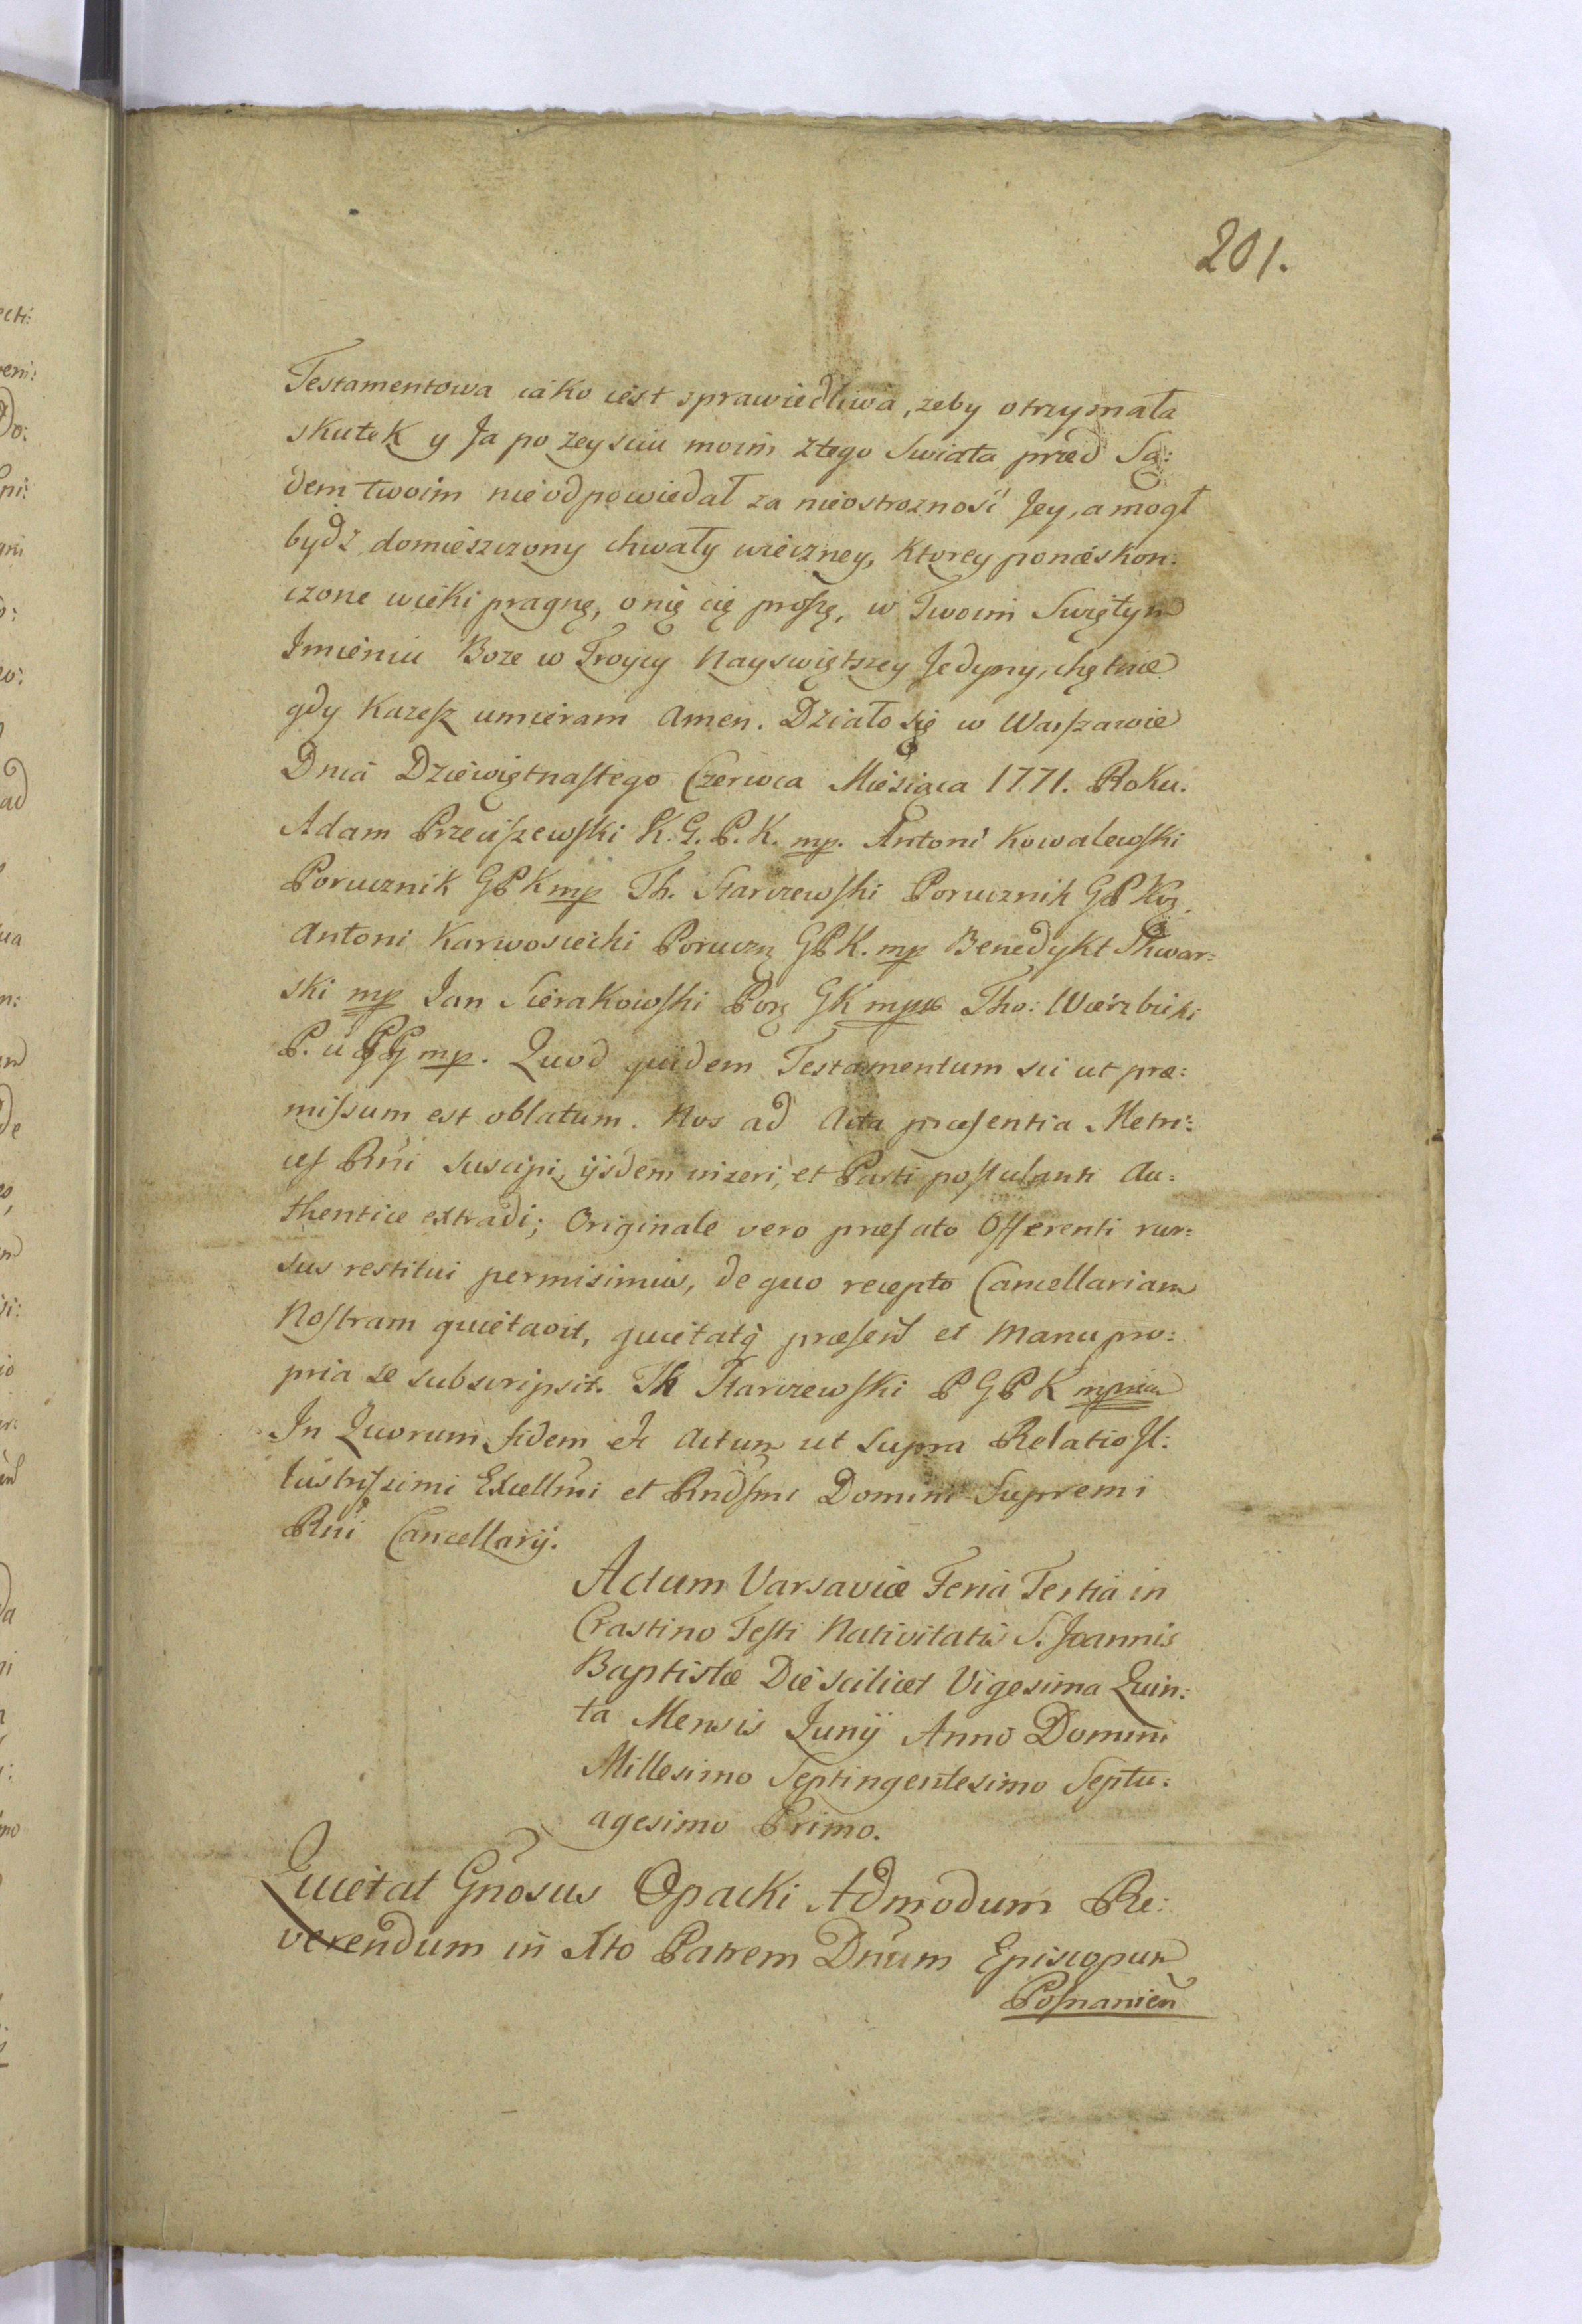 201.
Testamentowa iako iest sprawiedliwa, żeby otrzymała
skutek y Ja po zeysciu moim z tego Swiata przed Są:
dem twoim nie odpowiedał za nieostroznosć Jey, a mogł
bydź domieszczony chwały wieczney, ktorey ponieskon:
czone wieki pragnę, o nię cię proszę, w Twoim Swiętym
Imieniu Boze w Troycy Nayswiętszey Jedyny, chętnie
gdy kazesz umieram Amen. Działo się w Warszawie
Dnia Dziewiętnastego Czerwca Miesiąca 1771. Roku.
Adam Przeciszewski K. G. P. K. mp. Antoni Kowalewski
Porucznik GPK mp Th. Starczewski Porucznik GPKo.
Antoni Karwosiecki Porucz GPK. mp Benedykt
ski mp Jan Sierakowski Por GK mpp Tho: Wierzbicki
P. u GG mp. Quod quidem Testamentum sic ut præ:
missum est oblatum. Nos ad Acta præsentia Metri:
ces Rni suscipi, ijsdem inzeri, et Parti postulanti Au:
thentice extradi; Originale vero præfato Offerenti rur:
sus restitui permisimus, de quo recepto Cancellariam
Nostram quietavit, quietatq præsens et manu pro:
pria se subscripsit. Th Starczewski P G P K mppria
In Quorum fidem etc Actum ut supra Relatio Il:
lustrissimi Excellmi et Rndsmi Domini Supremi
Rni Cancellarij.
Actum Varsaviæ Feria Tertia in
Crastino Festi Nativitatis S. Joannis
Baptistæ Die scilicet Vigesima Quin:
ta Mensis Junij Anno Domini
Millesimo Septingentesimo Septu:
agesimo Primo.
Quietat Gnosus Opacki Admodum Re:
verendum in Xto Patrem Dnum Episcopum
Posnanien